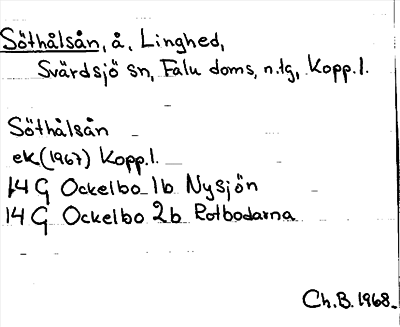 Söthålsån, å, Linghed,
Svärdsjö sn, Falu doms, n.tg, Kopp.l.
Söthålsån
ek.(1967) Kopp.l.
14 G Ockelbo 1b Nysjön
14 G Ockelbo 2b Rotbodarna
Ch.B. 1968.